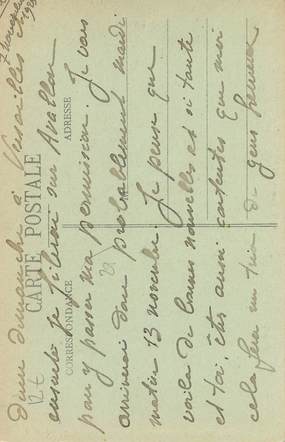 7 novembre
1923
CARTE POSTALE
CORRESPONDANCE
ADRESSE
dîner dimanche à Versailles et
ensuite je filerai sur Avallon
pour y passer ma permission. Je vais
arriverai donc probablement mardi
matin 13 novembre. Je pense que
voilà de bonnes nouvelles et si tante
et toi, êtes aussi contentes que moi
cela fera un trio de gens heureux